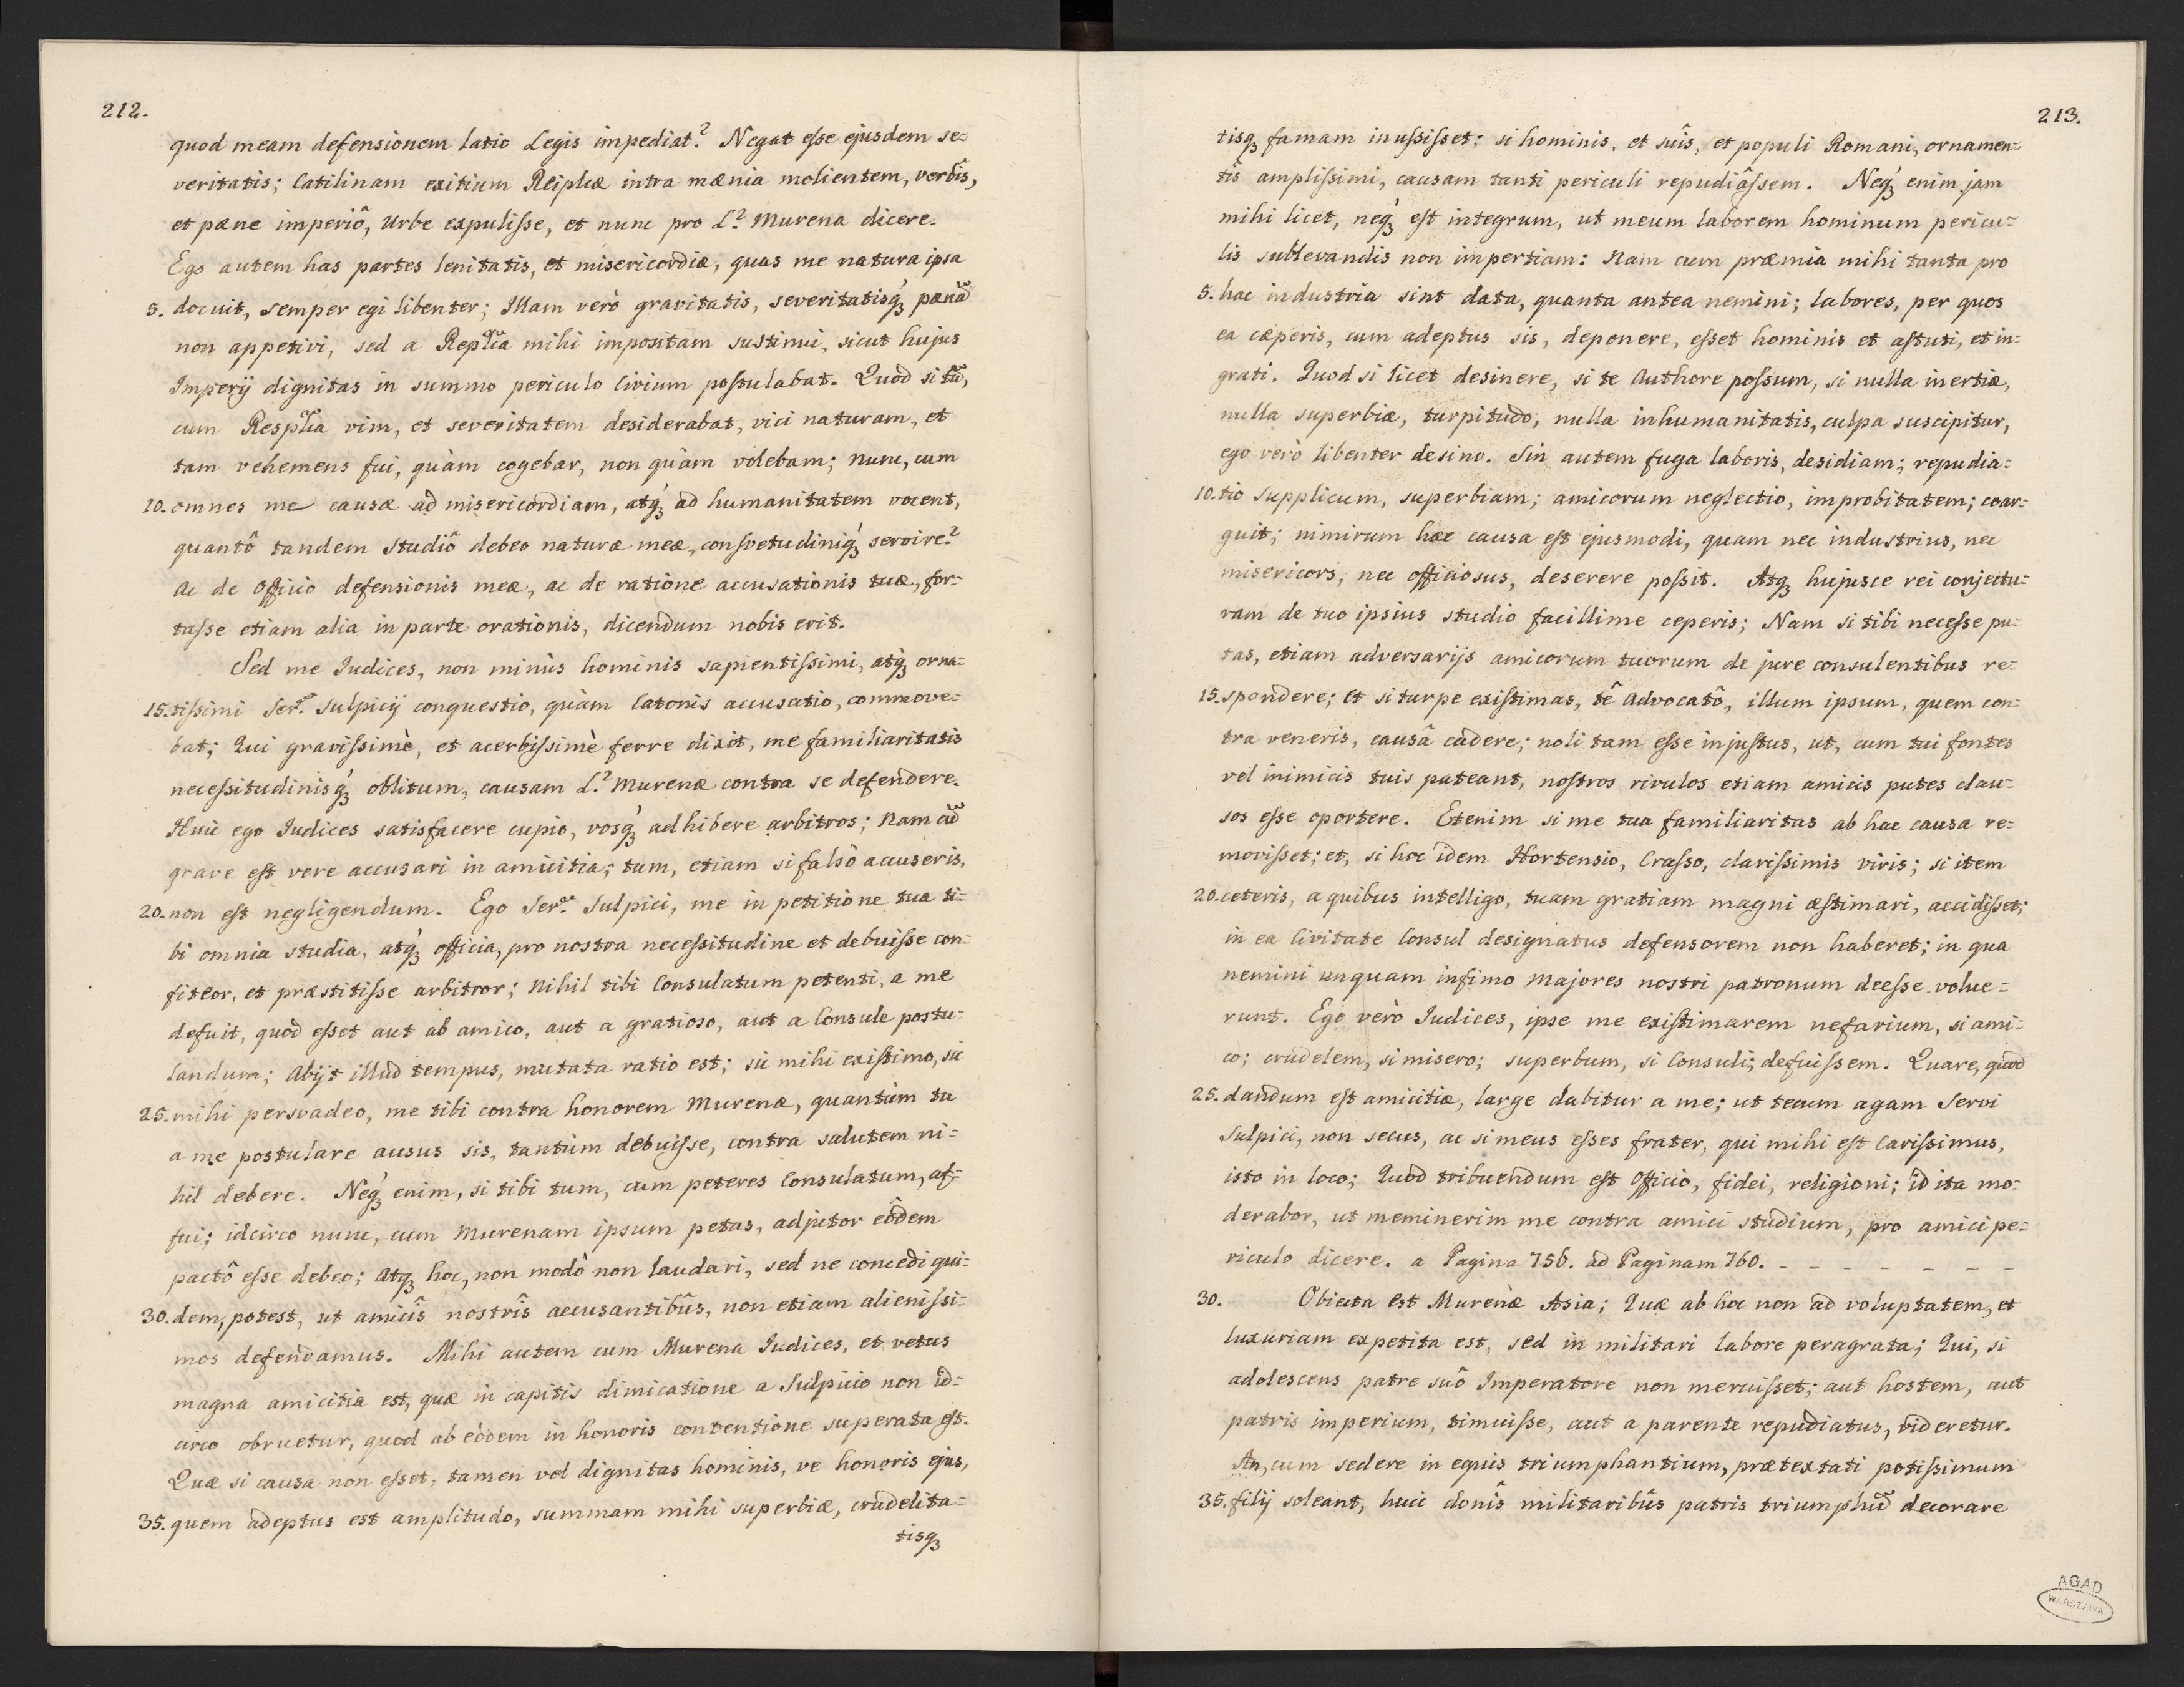 212.
quod meam defensionem latio Legis impediat? Negat eſse ejusdem se=
veritatis; Catilinam exitium Reiplcæ intra mænia molientem, verbîs,
et pæne imperiô, Urbe expuliſse, et nunc pro L? Murena dicere.
Ego autem has partes lenitatis, et misericordiæ, quas me natura ipsa
5. docuit, semper egi libenter; Illam verò gravitatis, severitatisq́ȝ pænã
non appetivi, sed a Replĩca mihi impositam sustinui, sicut hujus
Imperÿ dignitas in summo periculo Civium poſtulabat. Quòd si tũ,
cum Resplĩca vim, et severitatem desiderabat, vici naturam, et
tam vehemens fui, quàm cogebar, non quàm volebam; nunc, cum
10. omnes me causæ ad misericordiam, atq́ȝ ad humanitatem vocent,
quantô tandem studiô debeo naturæ meæ, consvetudiniq́ȝ servire?
Ac de Officio defensionis meæ, ac de ratione accusationis tuæ, for=
taſse etiam alia in parte orationis, dicendum nobis erit.
Sed me Iudices, non minùs hominis sapientiſsimi, atq́ȝ orna=
15. tiſsimi Ser. Sulpicÿ conquestio, quàm Catonis accusatio, commove=
bat; Qui graviſsimè, et acerbiſsimè ferre dixit, me familiaritatis
neceſsitudinisq́ȝ oblitum, causam L? Murenæ contra se defendere.
Huic ego Iudices satisfacere cupio, vosq́ȝ adhibere arbitros; Nam cũ
grave eſt vere accusari in amicitia; tum, etiam si falsò accuseris,
20. non eſt negligendum. Ego Ser. Sulpici, me in petitione tua ti=
bi omnia studia, atq́ȝ officia, pro nostra neceſsitudine et debuiſse con=
fiteor, et præstitiſse arbitror; Nihil tibi Consulatum petenti, a me
defuit, quòd eſset aut ab amico, aut a gratioso, aut a Consule postu=
landum; Abÿt illud tempus, mutata ratio est; sic mihi exiſtimo, sic
25. mihi persvadeo, me tibi contra honorem Murenæ, quantùm tu
a me postulare ausus sis, tantùm debuiſse, contra salutem ni=
hil debere. Neq́ȝ enim, si tibi tum, cum peteres Consulatum, af=
fui; idcirco nunc, cum Murenam ipsum petas, adjutor eôdem
pactô eſse debeo; Atqȝ hoc, non modò non laudari, sed ne concedi qui=
30. dem, potest, ut amicîs nostrîs accusantibûs, non etiam alieniſsi=
mos defendamus. Mihi autem cum Murena Iudices, et vetus
magna amicitia est, quæ in capitis dimicatione a Sulpicio non id=
circo obruetur, quod ab eòdem in honoris contentione superata eſt.
Quæ si causa non eſset, tamen vel dignitas hominis, ve honoris ejus,
35. quem adeptus est amplitudo, summam mihi superbiæ, crudelita=
tisqȝ
213.
tisqȝ famam inuſsiſset: si hominis, et suîs, et populi Romani, ornamen=
tîs ampliſsimi, causam tanti periculi repudiâſsem. Neq́ȝ enim jam
mihi licet, neq́ȝ eſt integrum, ut meum laborem hominum pericu=
lis sublevandis non impertiam: Nam cum præmia mihi tanta pro
5. hac industria sint data, quanta antea nemini; labores, per quos
ea cæperis, cum adeptus sis, deponere, eſset hominis et aſtuti, et in=
grati. Quod si licet desinere, si te Authore poſsum, si nulla inertiæ,
nulla superbiæ, turpitudo, nulla inhumanitatis, culpa suscipitur,
ego verò libenter desino. Sin autem fuga laboris, desidiam; repudia=
10. tio Supplicum, superbiam; amicorum neglectio, improbitatem; coar=
guit; nimirum hæc causa eſt ejusmodi, quam nec industrius, nec
misericors, nec officiosus, deserere poſsit. Atqȝ hujusce rei conjectu=
ram de tuo ipsius studio facillime ceperis; Nam si tibi neceſse pu=
tas, etiam adversarijs amicorum tuorum de jure consulentibus re=
15. spondere; et si turpe exiſtimas, tê Advocatô, illum ipsum, quem con=
tra veneris, causâ cadere; noli tam eſse injuſtus, ut, cum tui fontes
vel inimicis tuis pateant, noſtros rivulos etiam amicis putes clau=
sos eſse oportere. Etenim si me tua familiaritas ab hac causa re=
moviſset; et, si hoc idem Hortensio, Craſso, clariſsimis viris; si item
20. ceteris, a quibus intelligo, tuam gratiam magni æſtimari, accidiſset;
in ea Civitate Consul designatus defensorem non haberet; in qua
nemini unquam infimo Majores nostri patronum deeſse volue=
runt. Ego verò Iudices, ipse me exiſtimarem nefarium, si ami=
co; crudelem, si misero; superbum, si Consuli; defuiſsem. Quare, quod
25. dandum eſt amicitiæ, large dabitur a me; ut tecum agam Servi
Sulpici, non secus, ac si meus eſses frater, qui mihi eſt Cariſsimus,
isto in loco; Quod tribuendum eſt Officio, fidei, religioni; id ita mo=
derabor, ut meminerim me contra amici studium, pro amici pe=
riculo dicere. a Pagina 756. ad Paginam 760. - - - - - - -
30. Obiecta est Murenæ Asia; Quæ ab hoc non ad voluptatem, et
luxuriam expetita est, sed in militari labore peragrata; Qui, si
adolescens patre suô Imperatore non meruiſset; aut hostem, aut
patris imperium, timuiſse, aut a parente repudiatus, videretur.
An, cum sedere in equis triumphantium, prætextati potiſsimum
35. filÿ soleant, huic donîs militaribûs patris triumphũ decorare
AGAD
WARSZAWA